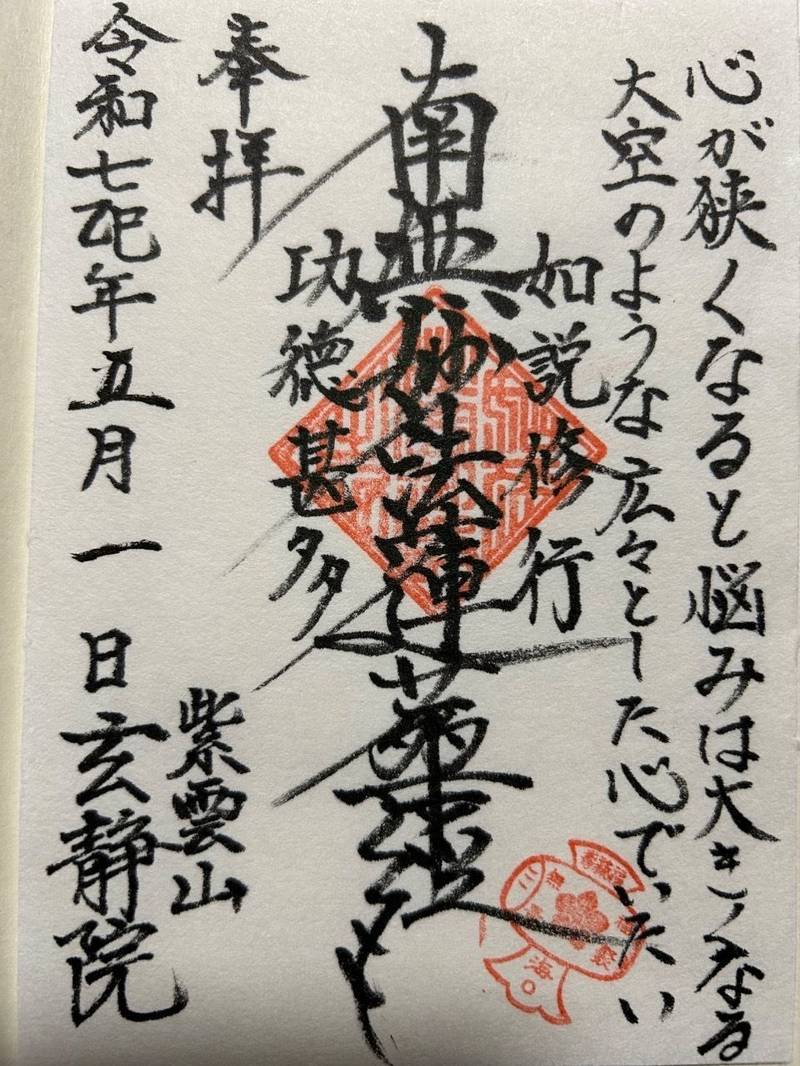 心が狭くなると悩みは大きくなる
大空のような広々とした心でいたい
如説修行
南無妙法蓮華経
功徳甚多
奉拝
紫雲山
令和七乙巳年五月一日玄静院